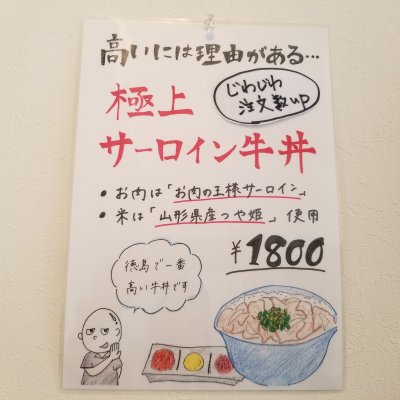 高いには理由がある…
じわじわ
注文数up
極上
サーロイン牛丼
・お肉は「お肉の王様サーロイン」
・米は「山形県産つや姫」使用
¥1800
徳島で一番
高い牛丼です